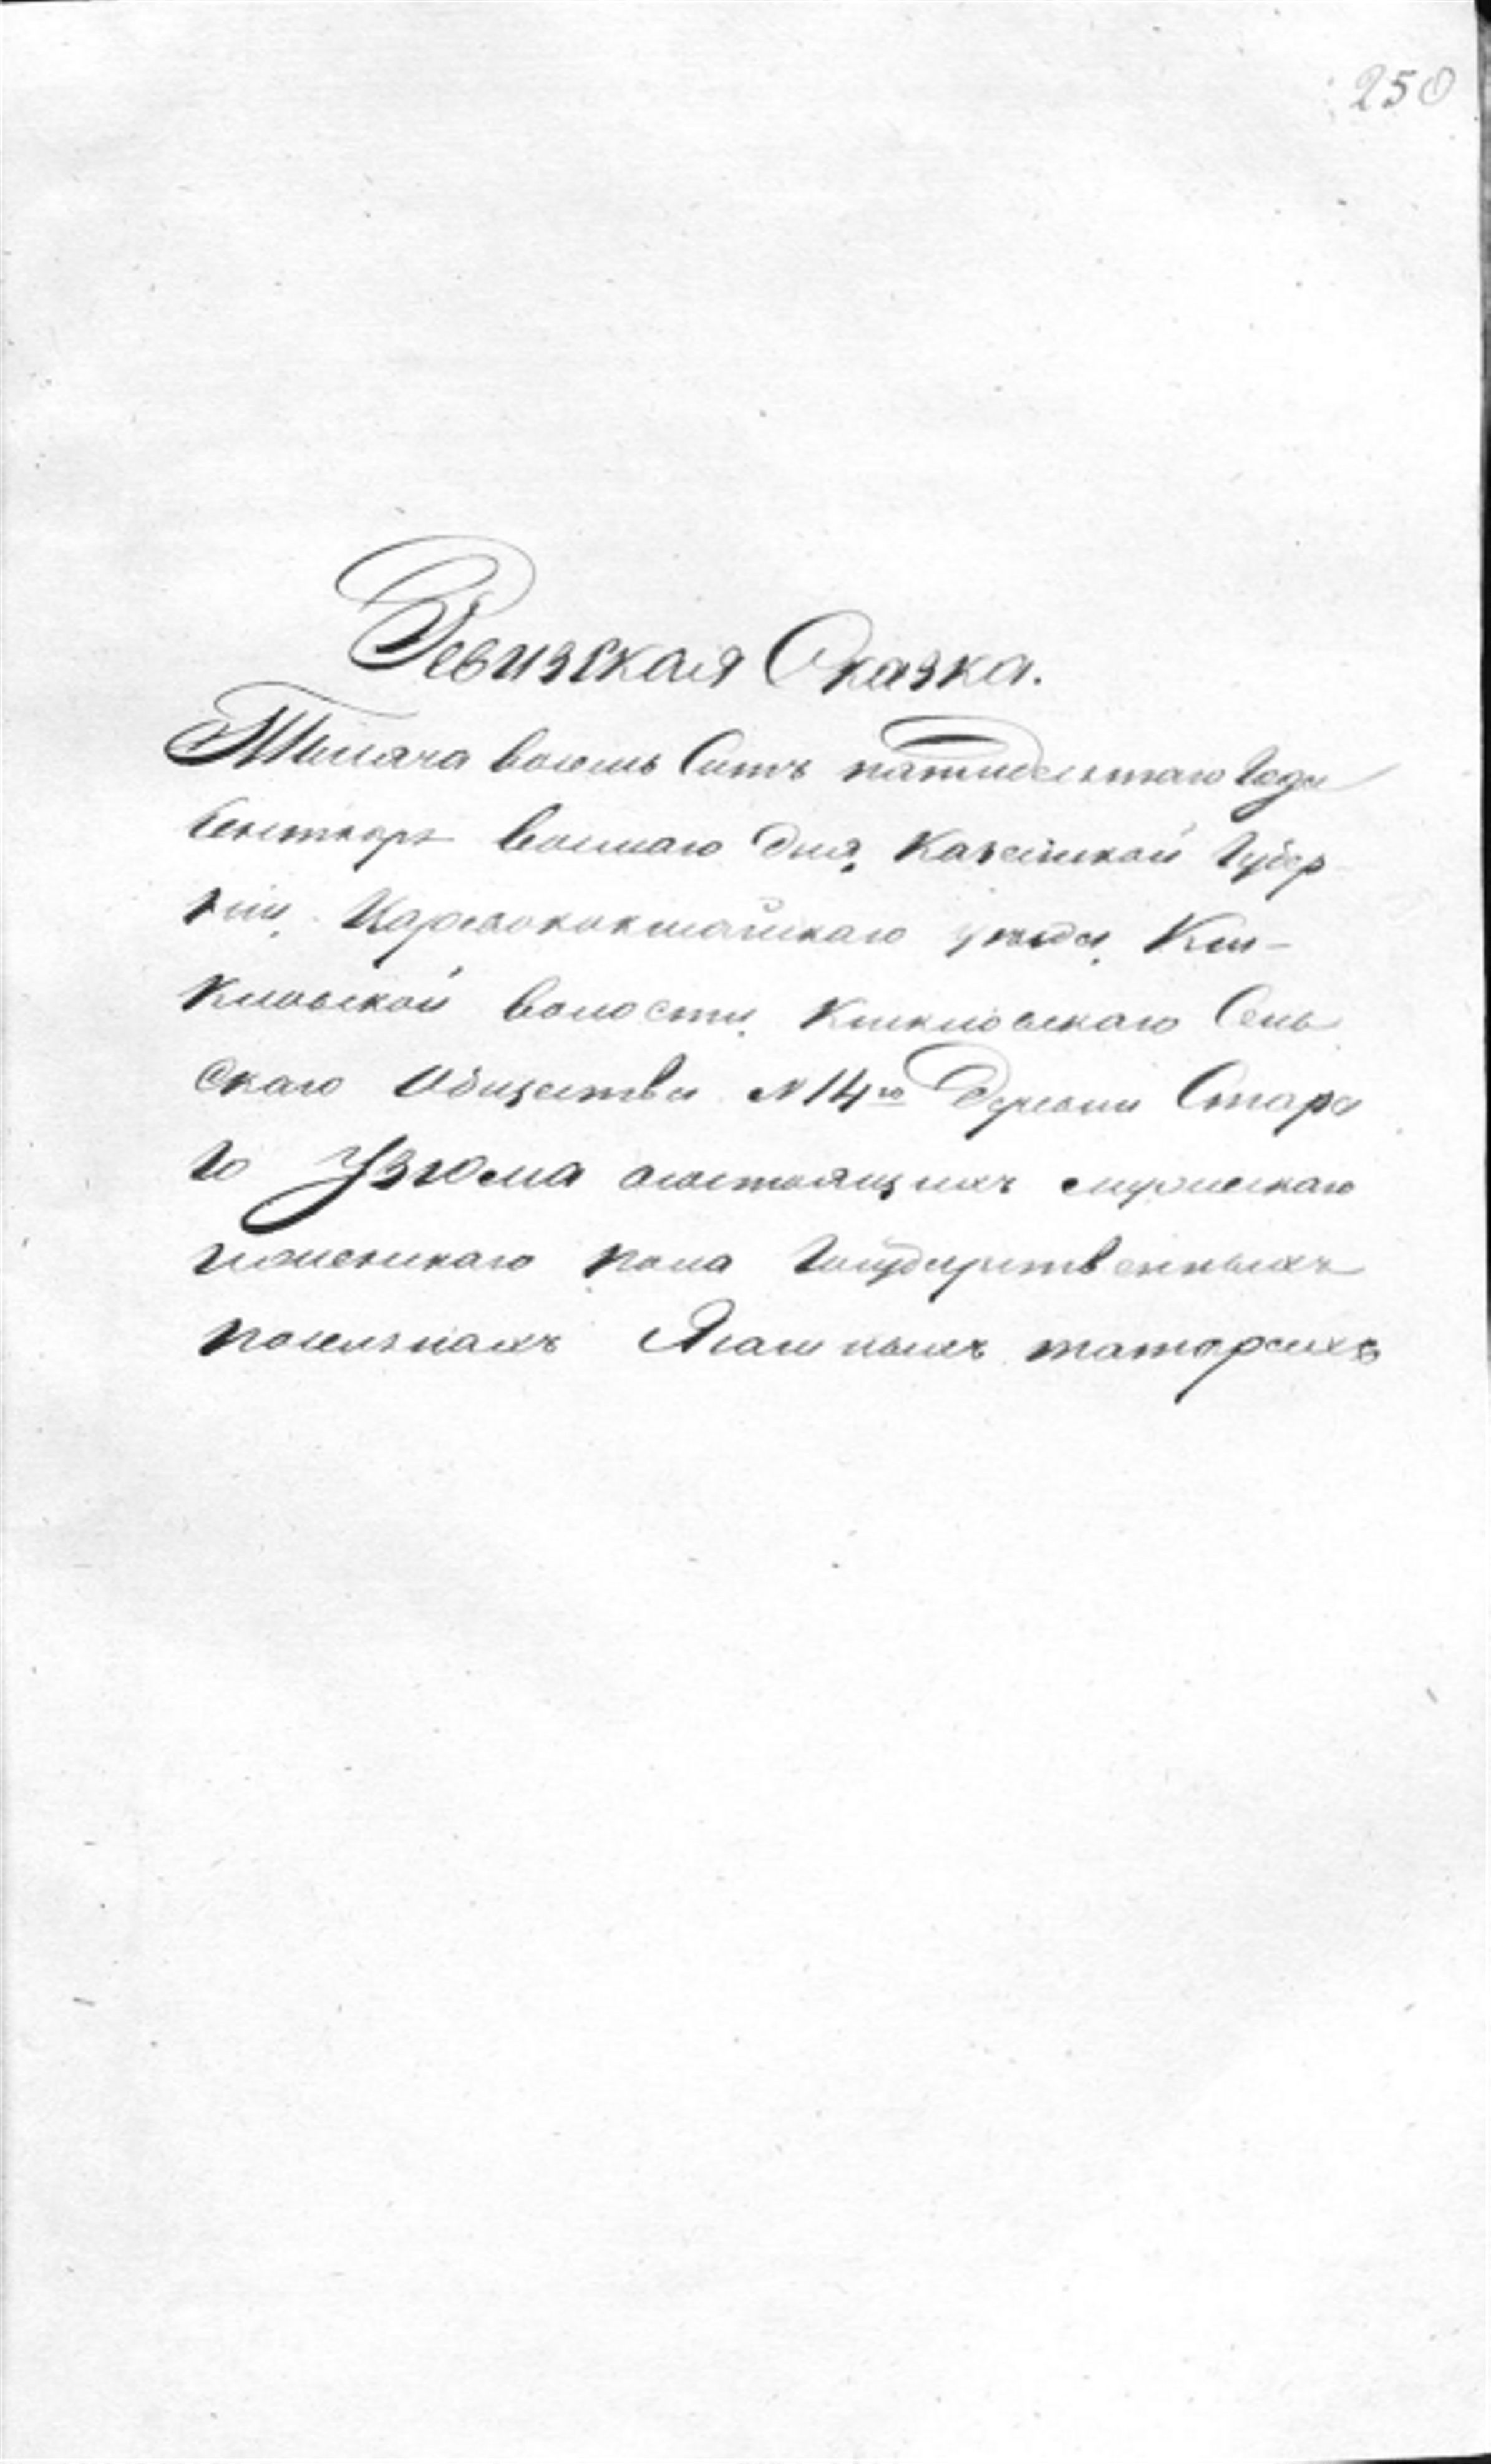 250
Ревизская Сказка.
Тысяча восемь Сотъ пятидесятаго Года
Сентября восмаго дня, Казанской Губер
ніи, Царевококшайскаго уезда, Кши-
Кловской волости, Кшкловскаго Сель
скаго Общества №14го Деревни Стара
го Узюма о состоящихъ мужескаго
и женскаго пола Государственныхъ
поселянахъ Ясашныхъ татарахъ